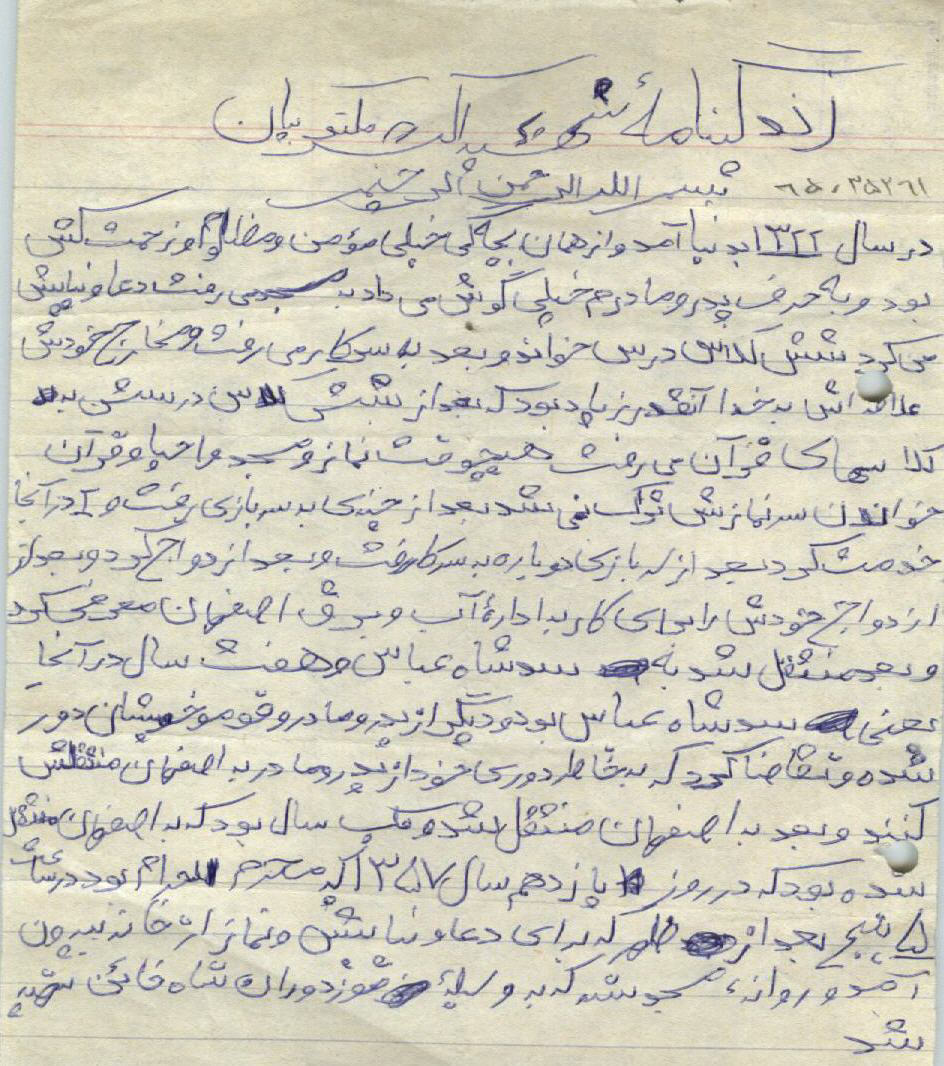 زندگینامهٔ شهید اکبر مکتوبیان
بسم الله الرحمن الرحیم ۶۵۰۳۵۲۶۱
در سال ۱۳۲۲ بدنیا آمد و از همان بچه گی خیلی مؤمن و مظلوم و زحمت کش
بود و به حرف پدر و مادرم خیلی گوش می داد به مسجد می رفت دعا و نیایش
می کرد شش کلاس درس خواند و بعد به سر کار می رفت و مخارج خودش
علاقه اش به خدا آنقدر زیاد بود که بعد از شش کلاس درسش به
کلاسهای قرآن می رفت هیچوقت نماز و مسجد و احیا و قرآن
خواندن سر نمازش ترک نمی شد بعد از چندی به سربازی رفت و در آنجا
خدمت کرد بعد از سربازی دوباره به سر کار رفت و بعد ازدواج کرد و بعد از
ازدواج خودش را برای کار به ادارهٔ آب و برق اصفهان معرفی کرد
و بعد منتقل شد به سد شاه عباس و هفت سال در آنجا
یعنی سد شاه عباس بود و دیگر از پدر و مادر و قوم و خویشان دور
شده و تقاضا کرد که به خاطر دوری خود از پدر و مادر به اصفهان منتقلش
کنند و بعد به اصفهان منتقل شد و یک سال بود که به اصفهان منتقل
شده بود که در روز یازدهم سال ۱۳۵۷ که محرم الحرام بود در ساعت
۵ پنج بعد از ظهر که برای دعا و نیایش و نماز از خانه بیرون
آمد و روانهٔ مسجد شد که به وسیلهٔ مزدوران شاه خائن شهید
شد